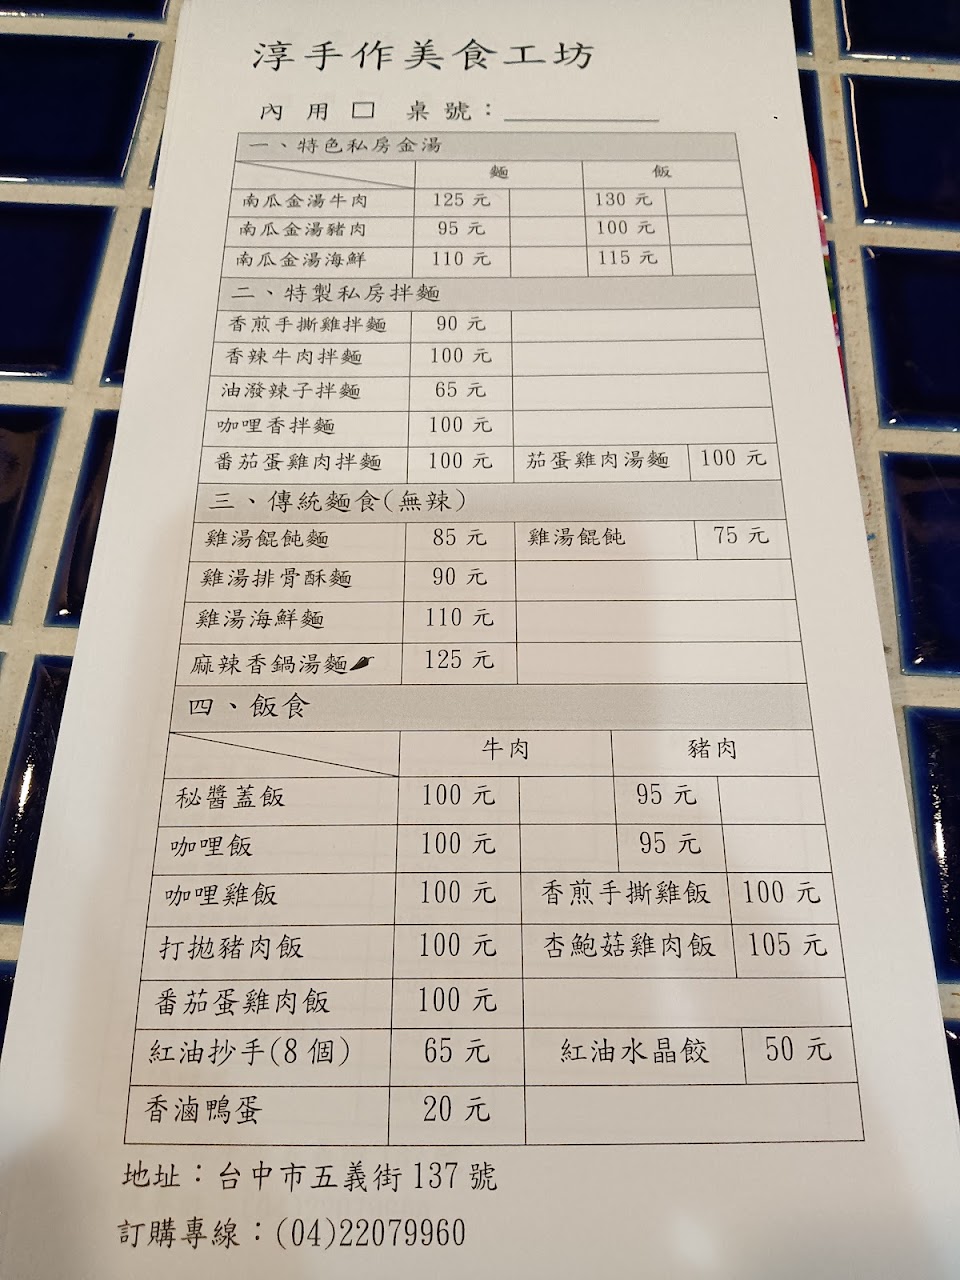 淳手作美食工坊
內用□ 桌號：
一、特色私房金湯
麵 飯
南瓜金湯牛肉 125元 130元
南瓜金湯豬肉 95元 100元
南瓜金湯海鮮 110元 115元
二、特製私房拌麵
香煎手撕雞拌麵 90元
香辣牛肉拌麵 100元
油潑辣子拌麵 65元
咖哩香拌麵 100元
番茄蛋雞肉拌麵 100元 茄蛋雞肉湯麵 100元
三、傳統麵食(無辣)
雞湯餛飩麵 85元 雞湯餛飩 75元
雞湯排骨酥麵 90元
雞湯海鮮麵 110元
麻辣香鍋湯麵🌶 125元
四、飯食
牛肉 豬肉
秘醬蓋飯 100元 95元
咖哩飯 100元 95元
咖哩雞飯 100元 香煎手撕雞飯 100元
打拋豬肉飯 100元 杏鮑菇雞肉飯 105元
番茄蛋雞肉飯 100元
紅油抄手(8個) 65元 紅油水晶餃 50元
香滷鴨蛋 20元
地址：台中市五義街137號
訂購專線：(04)22079960